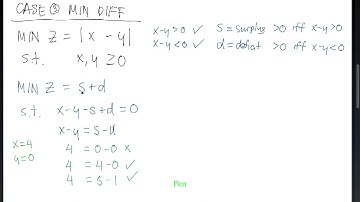 CASE ③ MIN DIFF
MIN Z = |x - y|
s.t. x, y ≥ 0
x-y>0 ✓ s = surplus >0 iff x-y>0
x-y<0 ✓ d = deficit >0 iff x-y<0
MIN Z = s+d
s.t. x-y-s+d=0
x-y = s-d
x=4 4 = 0-0 x
y=0 4 = 4-0 ✓
4 = 5-1 ✓
Pen